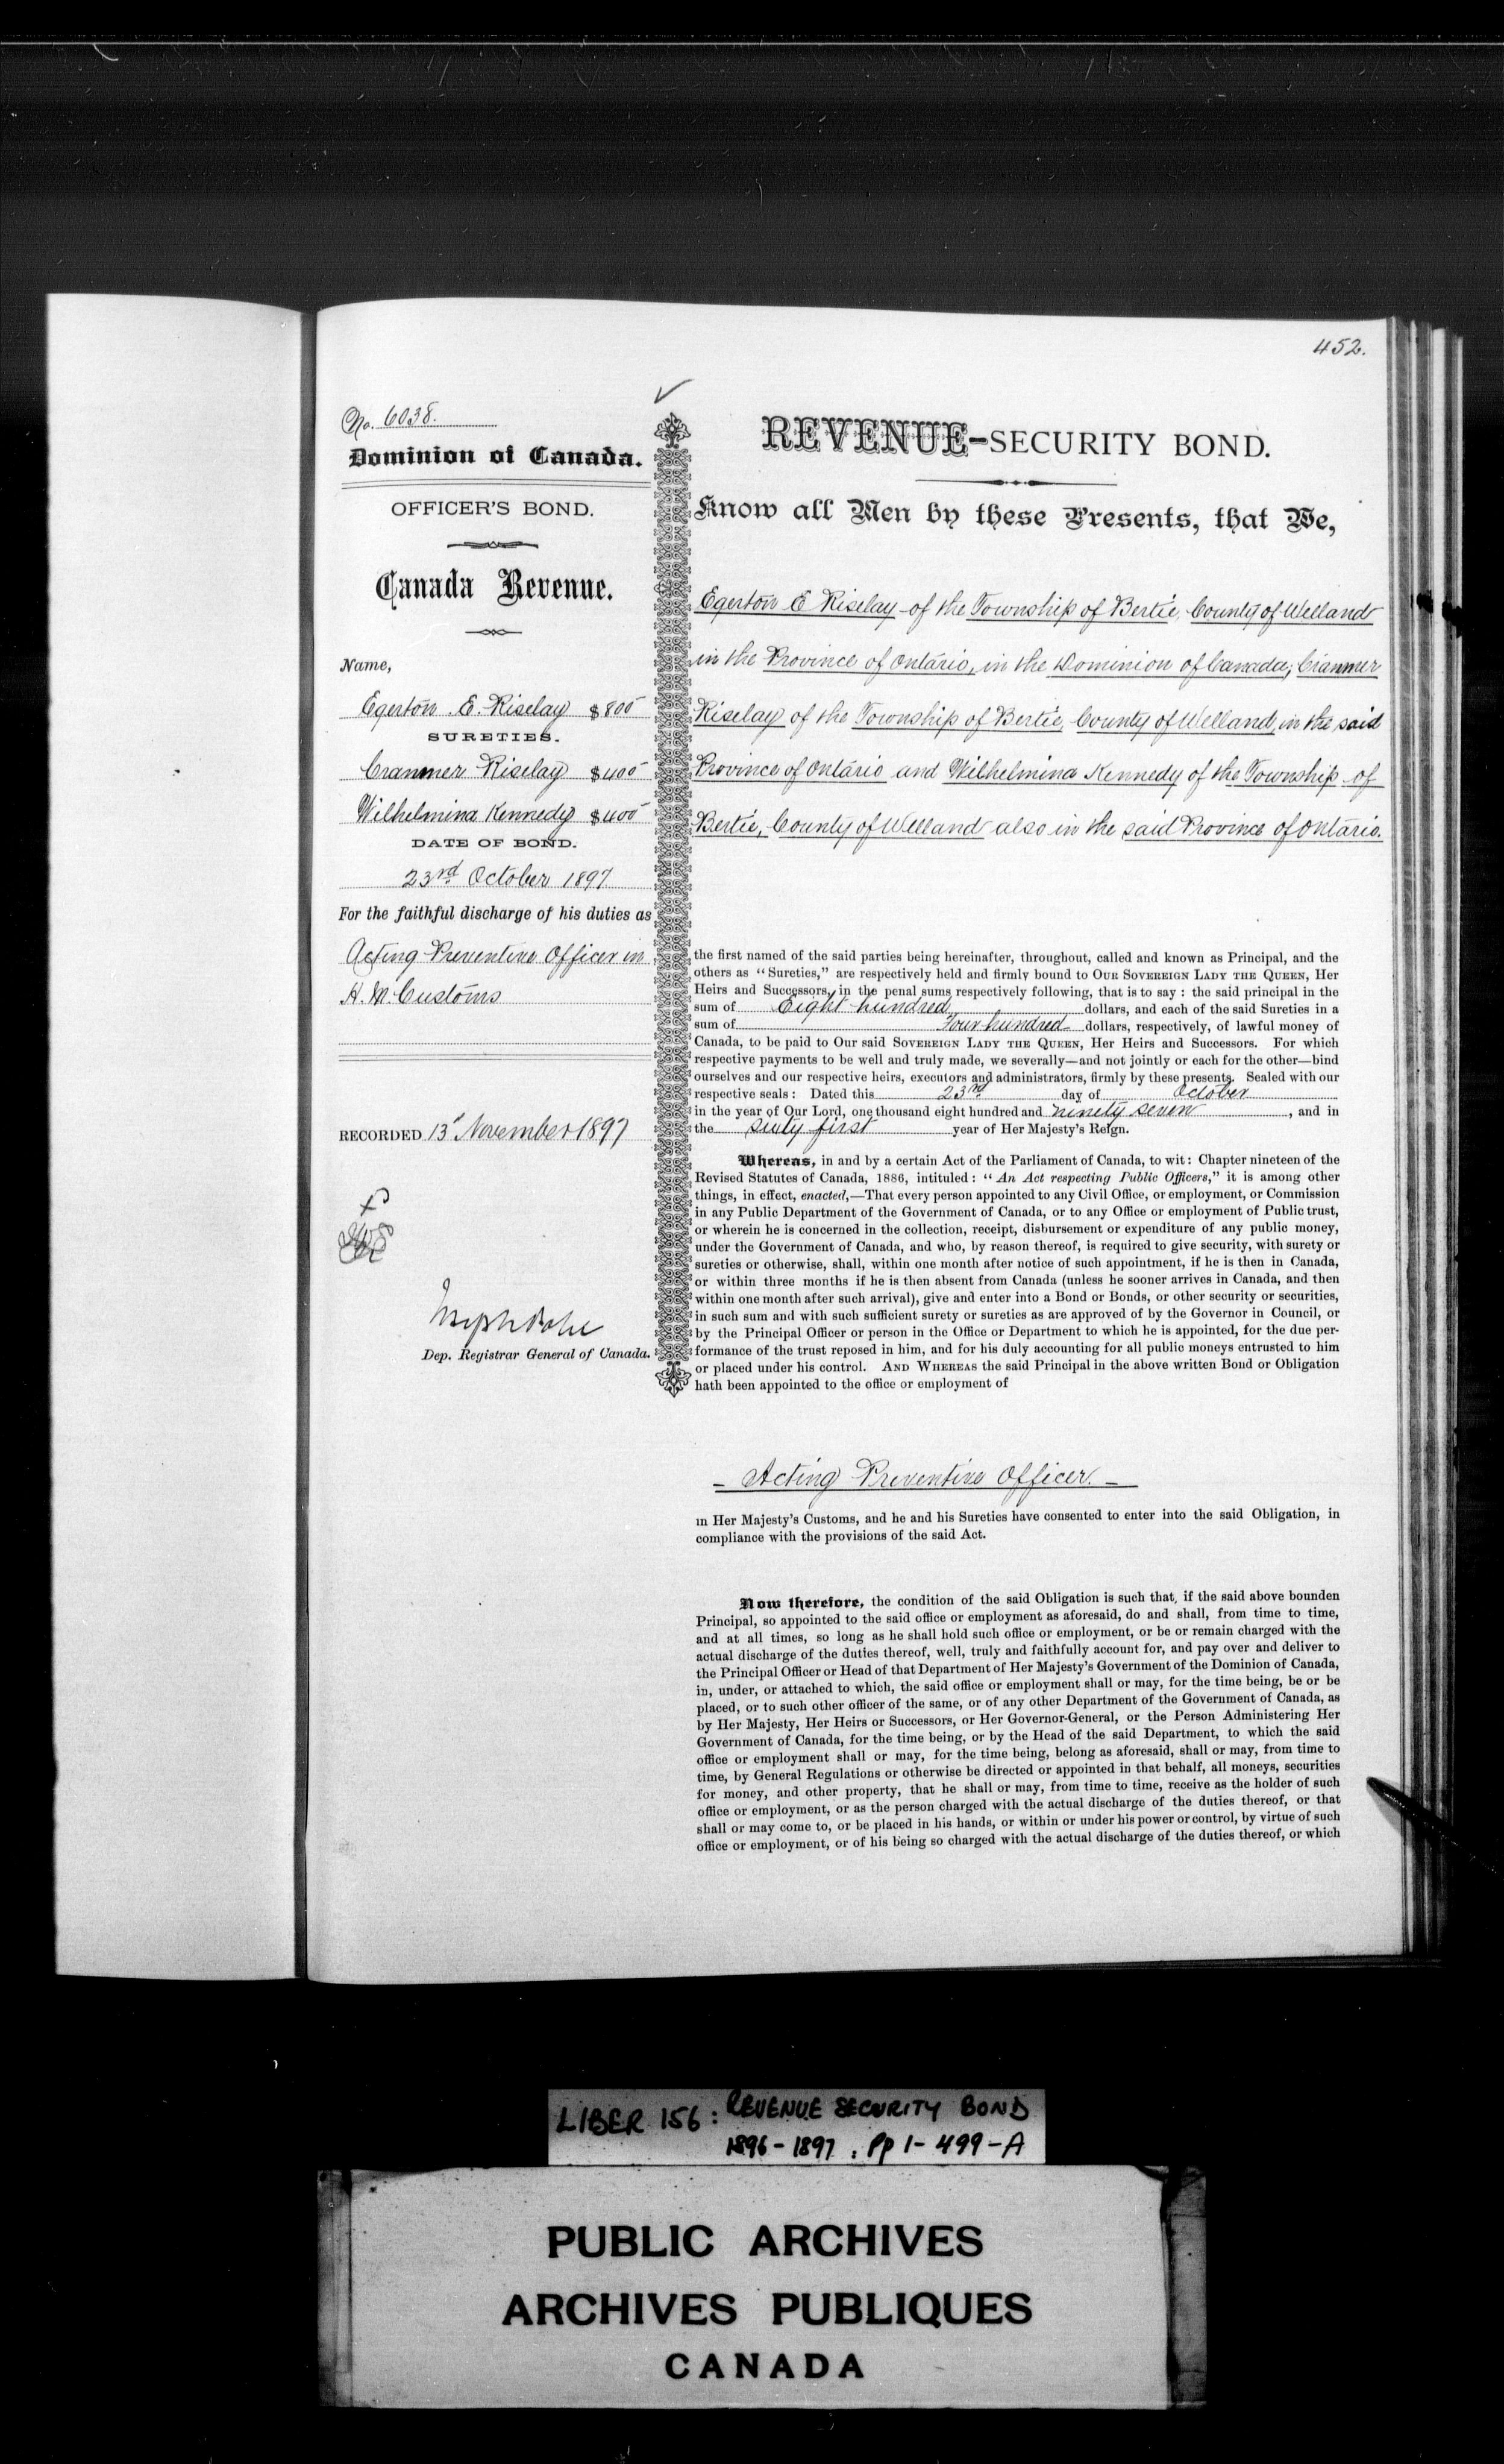 452.
No. 6038.
Dominion of Canada.
OFFICER'S BOND.
Canada Revenue.
Name,
Egerton E. Riselay $800
SURETIES.
Cranmer Riselay $400
Wilhelmina Kennedy $400
DATE OF BOND.
23rd October 1897
For the faithful discharge of his duties as
Acting Preventive Officer in
H. M. Customs
RECORDED 13" November 1897
Joseph Pope
Dep. Registrar General of Canada.
REVENUE-SECURITY BOND.
Know all Men by these Presents, that We,
Egerton E Riselay of the Township of Bertie, County of Welland
in the Province of Ontario, in the Dominion of Canada; Cranmer
Riselay of the Township of Bertie, County of Welland, in the said
Province of Ontario and Wilhelmina Kennedy of the Township of
Bertie, County of Welland also in the said Province of Ontario.
the first named of the said parties being hereinafter, throughout, called and known as Principal, and the
others as "Sureties," are respectively held and firmly bound to OUR SOVEREIGN LADY THE QUEEN, Her
Heirs and Successors, in the penal sums respectively following, that is to say : the said principal in the
sum of Eight hundred dollars, and each of the said Sureties in a
sum of Four hundred dollars, respectively, of lawful money of
Canada, to be paid to Our said SOVEREIGN LADY THE QUEEN, Her Heirs and Successors. For which
respective payments to be well and truly made, we severally—and not jointly or each for the other—bind
ourselves and our respective heirs, executors and administrators, firmly by these presents. Sealed with our
respective seals : Dated this 23rd day of October
in the year of Our Lord, one thousand eight hundred and ninety seven, and in
the sixty first year of Her Majesty's Reign.
Whereas, in and by a certain Act of the Parliament of Canada, to wit: Chapter nineteen of the
Revised Statutes of Canada, 1886, intituled: "An Act respecting Public Officers," it is among other
things, in effect, enacted,—That every person appointed to any Civil Office, or employment, or Commission
in any Public Department of the Government of Canada, or to any Office or employment of Public trust,
or wherein he is concerned in the collection, receipt, disbursement or expenditure of any public money,
under the Government of Canada, and who, by reason thereof, is required to give security, with surety or
sureties or otherwise, shall, within one month after notice of such appointment, if he is then in Canada,
or within three months if he is then absent from Canada (unless he sooner arrives in Canada, and then
within one month after such arrival), give and enter into a Bond or Bonds, or other security or securities,
in such sum and with such sufficient surety or sureties as are approved of by the Governor in Council, or
by the Principal Officer or person in the Office or Department to which he is appointed, for the due per-
formance of the trust reposed in him, and for his duly accounting for all public moneys entrusted to him
or placed under his control. AND WHEREAS the said Principal in the above written Bond or Obligation
hath been appointed to the office or employment of
- Acting Preventive Officer. -
in Her Majesty's Customs, and he and his Sureties have consented to enter into the said Obligation, in
compliance with the provisions of the said Act.
Now therefore, the condition of the said Obligation is such that, if the said above bounden
Principal, so appointed to the said office or employment as aforesaid, do and shall, from time to time,
and at all times, so long as he shall hold such office or employment, or be or remain charged with the
actual discharge of the duties thereof, well, truly and faithfully account for, and pay over and deliver to
the Principal Officer or Head of that Department of Her Majesty's Government of the Dominion of Canada,
in, under, or attached to which, the said office or employment shall or may, for the time being, be or be
placed, or to such other officer of the same, or of any other Department of the Government of Canada, as
by Her Majesty, Her Heirs or Successors, or Her Governor-General, or the Person Administering Her
Government of Canada, for the time being, or by the Head of the said Department, to which the said
office or employment shall or may, for the time being, belong as aforesaid, shall or may, from time to
time, by General Regulations or otherwise be directed or appointed in that behalf, all moneys, securities
for money, and other property, that he shall or may, from time to time, receive as the holder of such
office or employment, or as the person charged with the actual discharge of the duties thereof, or that
shall or may come to, or be placed in his hands, or within or under his power or control, by virtue of such
office or employment, or of his being so charged with the actual discharge of the duties thereof, or which
LIBER 156: REVENUE SECURITY BOND
1896-1897 : Pp 1-499-A
PUBLIC ARCHIVES
ARCHIVES PUBLIQUES
CANADA